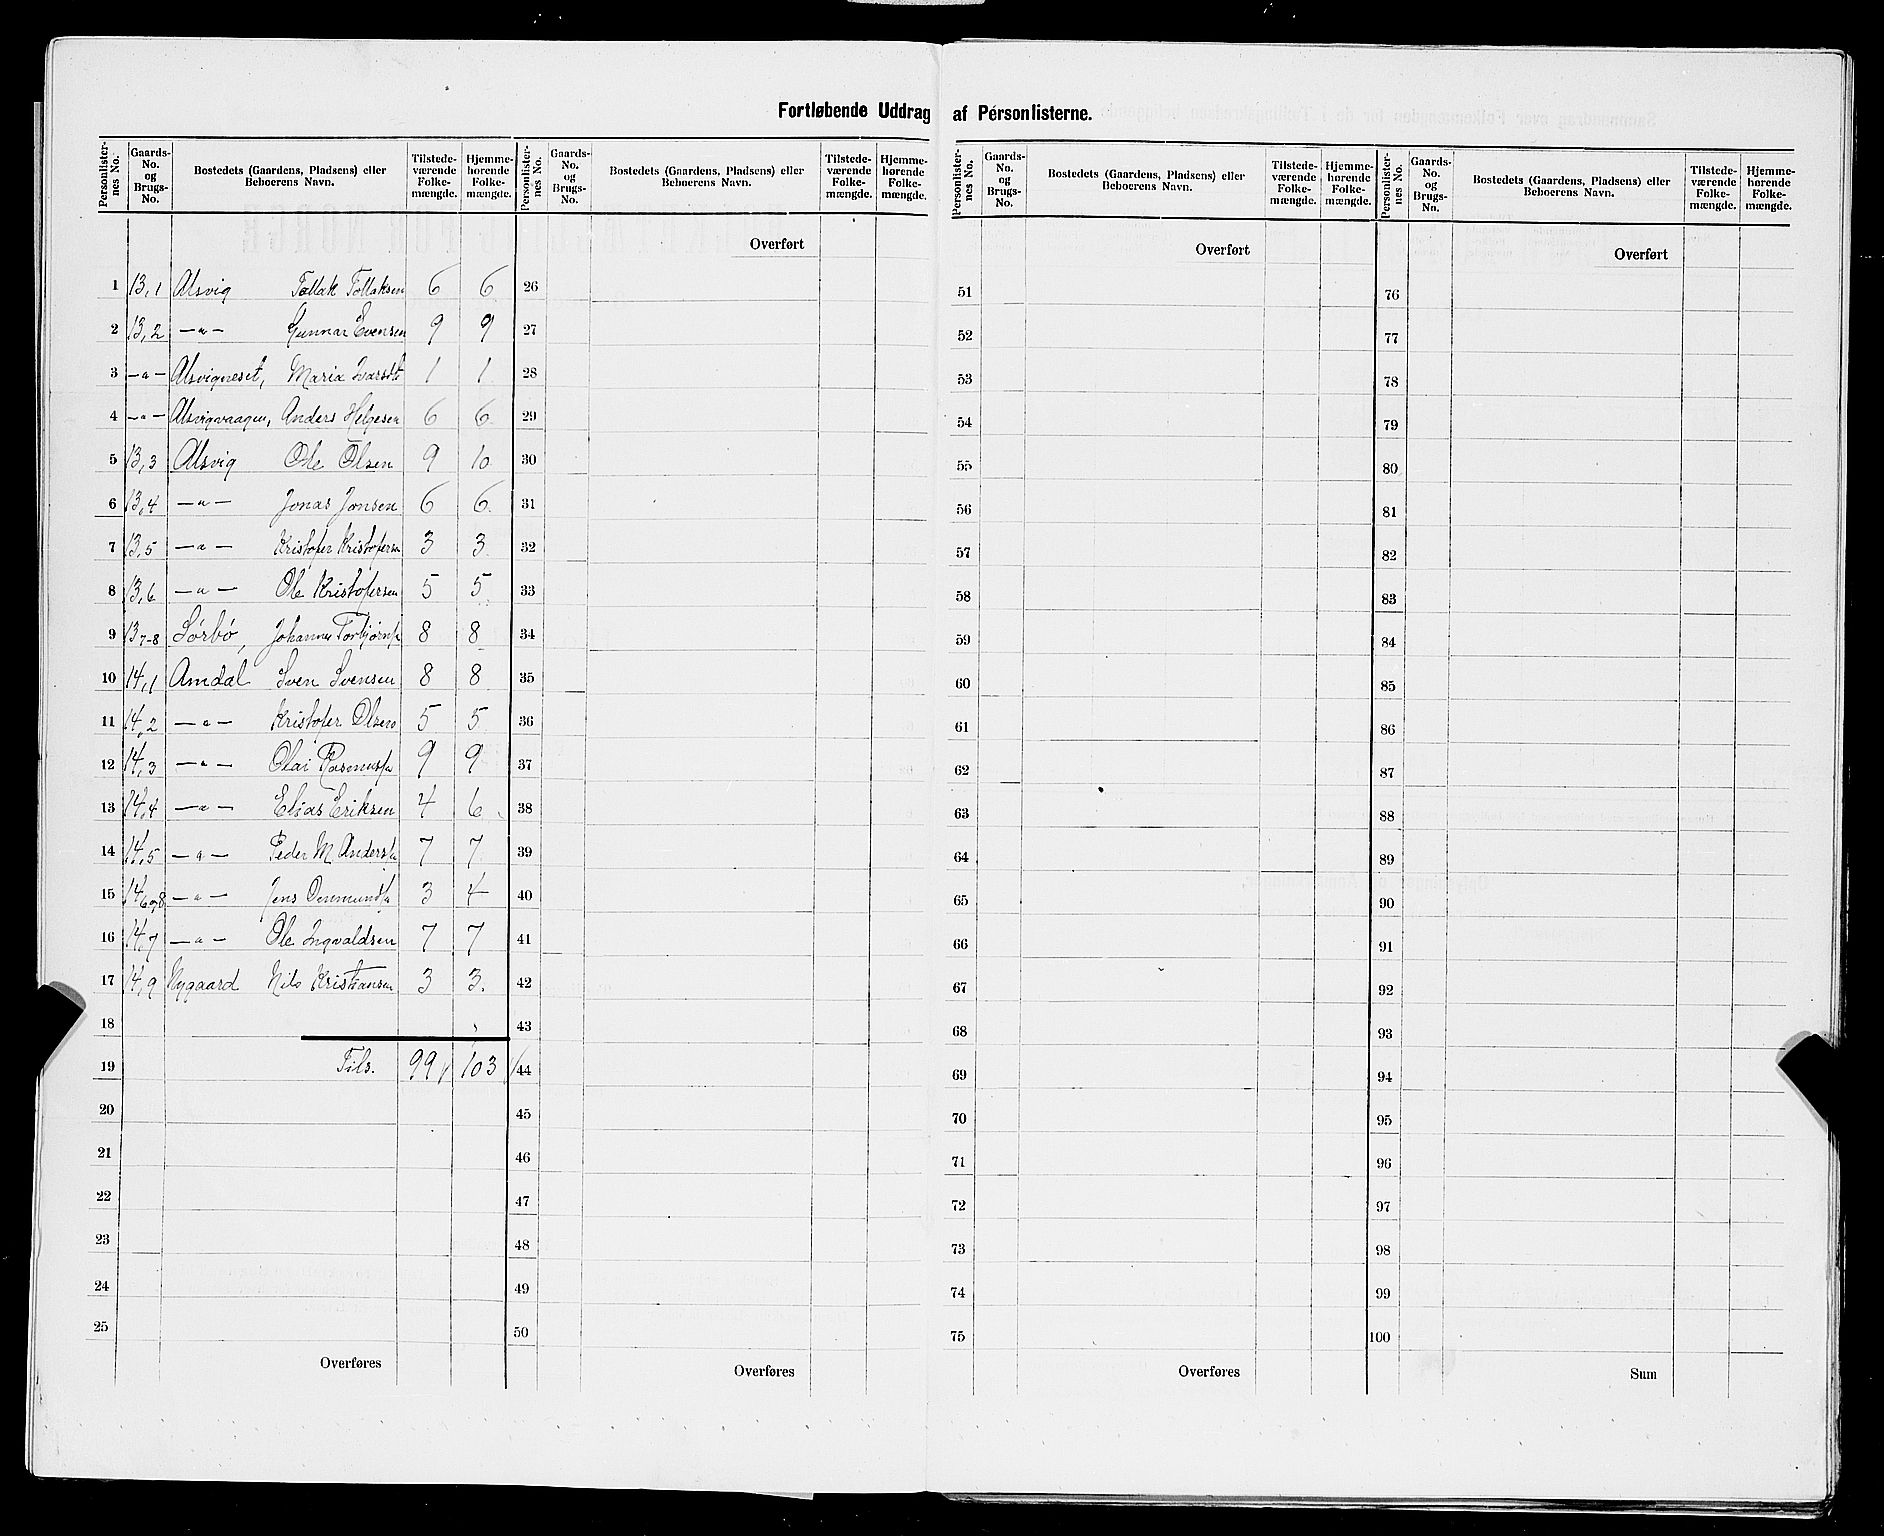 Fortløbende Uddrag af Pérsonlisterne.
Personlister-nes No. | Gaards-No. og Brugs-No. | Bostedets (Gaardens, Pladsens) eller Beboerens Navn. | Tilstede-værende Folke-mængde. | Hjemme-hørende Folke-mængde. | Personlister-nes No. | Gaards-No. og Brugs-No. | Bostedets (Gaardens, Pladsens) eller Beboerens Navn. | Tilstede-værende Folke-mængde. | Hjemme-hørende Folke-mængde. | Personlister-nes No. | Gaards-No. og Brugs-No. | Bostedets (Gaardens, Pladsens) eller Beboerens Navn. | Tilstede-værende Folke-mængde. | Hjemme-hørende Folke-mængde. | Personlister-nes No. | Gaards-No. og Brugs-No. | Bostedets (Gaardens, Pladsens) eller Beboerens Navn. | Tilstede-værende Folke-mængde. | Hjemme-hørende Folke-mængde.
Overført Overført Overført
1 13,1 Alsvig Tollak Tollaksen 6 6 26 51 76
2 13,2 —"— Gunnar Evensen 9 9 27 52 77
3 —"— Alsvigneset, Maria Ivarsdt 1 1 28 53 78
4 —"— Alsvigvaagen, Anders Helgesen 6 6 29 54 79
5 13,3 Alsvig Ole Olsen 9 10 30 55 80
6 13,4 —"— Jonas Jonsen 6 6 31 56 81
7 13,5 —"— Kristofer Kristofersen 3 3 32 57 82
8 13,6 —"— Ole Kristofersen 5 5 33 58 83
9 13,7-8 Sørbø, Johannes Torbjørns 8 8 34 59 84
10 14,1 Amdal Sven Svensen 8 8 35 60 85
11 14,2 —"— Kristofer Olsen 5 5 36 61 86
12 14,3 —"— Olai Rasmuss 9 9 37 62 87
13 14,4 —"— Elias Eriksen 4 6 38 63 88
14 14,5 —"— Peder M. Anders 7 7 39 64 89
15 14,6 8 —"— Jens 3 4 40 65 90
16 14,7 —"— Ole Ingvaldsen 7 7 41 66 91
17 14,9 Nygaard Nils Kristiansen 3 3. 42 67 92
18 43 68 93
19 Tils. 99 103 44 69 94
20 45 70 95
21 46 71 96
22 47 72 97
23 48 73 98
24 49 74 99
25 50 75 100
Overføres Overføres Overføres Sum